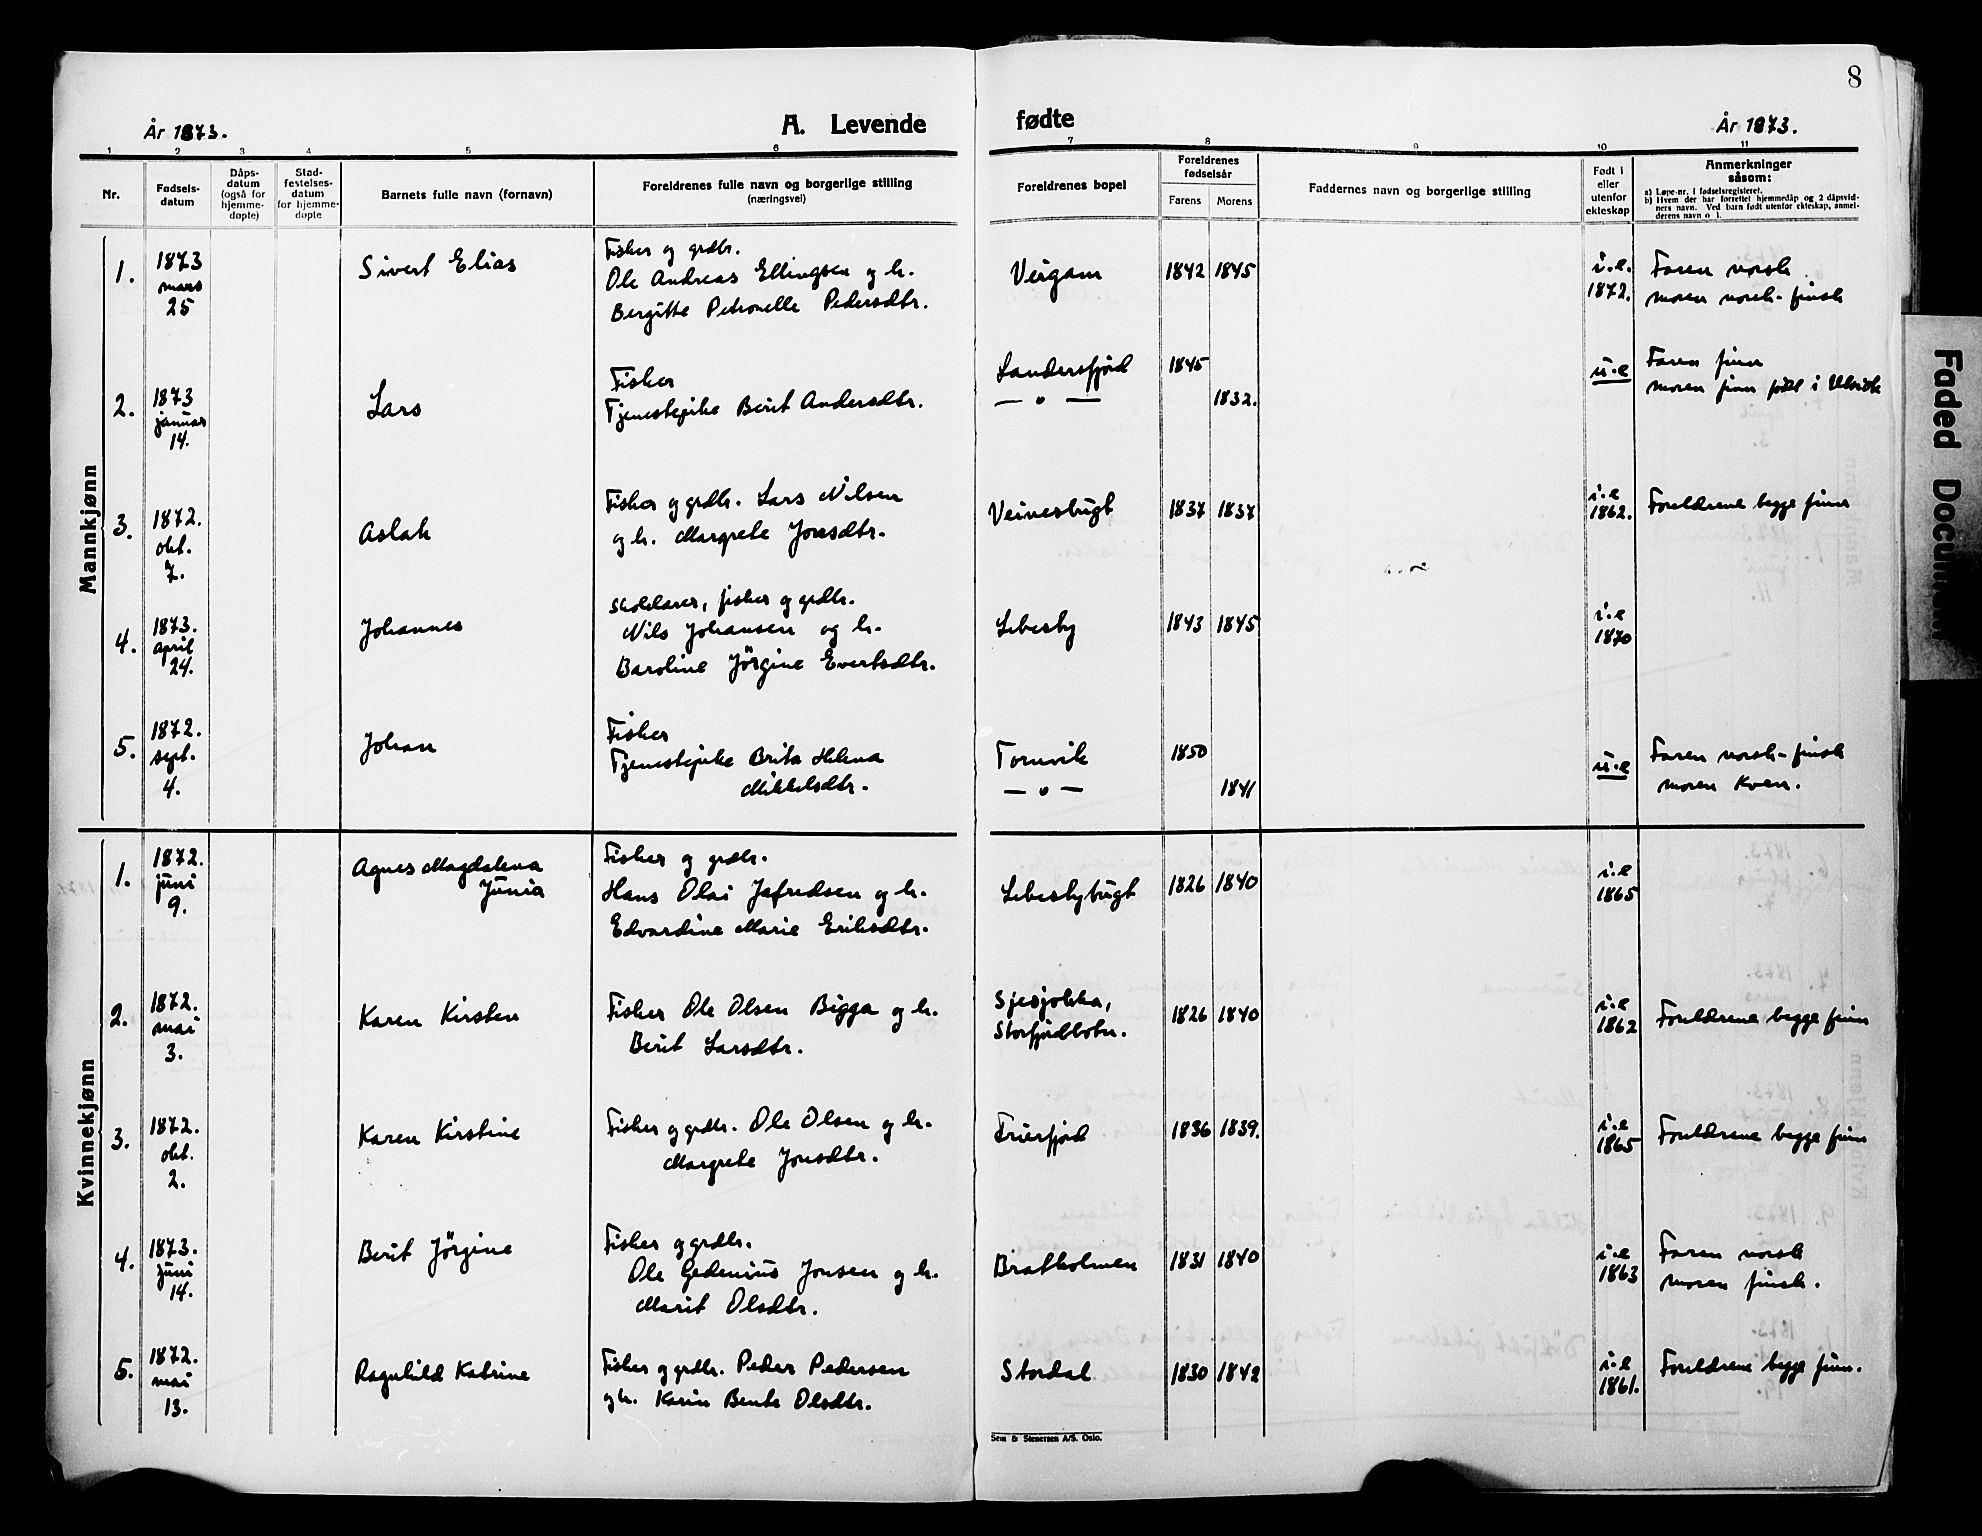 8
År 1873.
A. Levende
fødte
År 1873.
1 2 3 4 5 6 7 8 9 10 11
Nr.
Fødsels-
datum
Dåps-
datum
(også for
hjemme-
døpte)
Stad-
festelses-
datum
for hjemme-
døpte
Barnets fulle navn (fornavn)
Foreldrenes fulle navn og borgerlige stilling
(næringsvei)
Foreldrenes bopel
Foreldrenes
fødselsår
Farens
Morens
Faddernes navn og borgerlige stilling
Født i
eller
utenfor
ekteskap
Anmerkninger
såsom:
a) Løpe-nr. i fødselsregisteret.
b) Hvem der har forrettet hjemmedåp og 2 dåpsvid-
ners navn. Ved barn født utenfor ekteskap, anmel-
derens navn o. l.
Mannkjønn
1.
1873
mars
25
Sivert Elias
Fisker og grdbr.
Ole Andreas Ellingsen og h.
Bergitte Petronelle Pedersdtr.
Veigam
1842 1845
i.e.
1872.
Faren norsk
moren norsk-finsk
2.
1873
januar
14.
Lars
Fisker
Tjenestepike Berit Andersdtr.
Landersfjord
— " —
1845
1832.
u.e
Faren finn
moren finn født i
3.
1872.
okt.
7.
Aslak
Fisker og grdbr. Lars Nilsen
og h. Margrete Jonsdtr.
Veinesbugt
1837 1837
i.e
1862.
Foreldrene begge finner
4.
1873.
april
24.
Johannes
Skolelærer, fisker og grdbr.
Nils Johansen og h.
Baroline Jörgine Evertsdtr.
Lebesby
1843 1845
i.e
1870
5.
1872.
sept.
4.
Johan
Fisker
Tjenestepike Brita Helena
Mikkelsdtr.
Tornvik
— " —
1850
1841
u.e
Faren norsk-finsk
moren Kven.
Kvinnekjønn
1.
1872.
juni
9.
Agnes Magdalena
Junia
Fisker og grdbr.
Hans Olai Jafredsen og h.
Edvardine Marie Eriksdtr.
Lebesbybugt
1826 1840
i.e
1865
2.
1872.
mai
3.
Karen Kirsten
Fisker Ole Olsen Bigga og h.
Berit Larsdtr.
Sjesjokka,
Storfjordbotn.
1826 1840
i.e
1862
Foreldrene begge finner
3.
1872.
okt.
2.
Karen Kirstine
Fisker og grdbr. Ole Olsen og h.
Margrete Jonsdtr.
Frierfjord
1836 1839.
i.e
1865
Foreldrene begge finn
4.
1873.
juni
14.
Berit Jörgine
Fisker og grdbr.
Ole Gedenius Jonsen og h.
Marit Olsdtr.
Bratholmen
1831 1840
i.e
1863
Faren norsk
moren finsk.
5.
1872.
mai
13.
Ragnhild Katrine
Fisker og grdbr. Peder Pedersen
og h. Karin Bente Olsdtr.
Stordal
1830 1842
i.e
1861.
Foreldrene begge finn.
Sem & Stenersen A/S. Oslo.
Faded Document